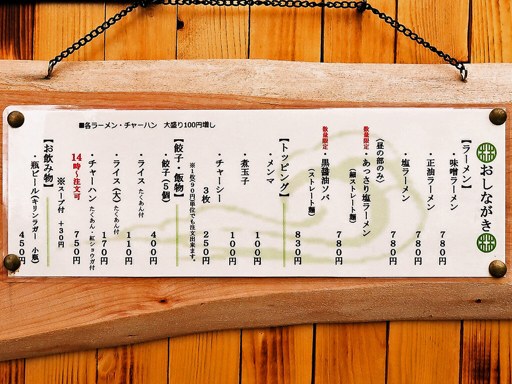 おしながき
【ラーメン】
・味噌ラーメン 780円
・正油ラーメン 780円
・塩ラーメン 780円
（昼の部のみ）
数量限定・あっさり塩ラーメン 780円
（細ストレート麺）
数量限定・黒醤油ソバ 830円
（ストレート麺）
【トッピング】
・メンマ 100円
・煮玉子 100円
・チャーシー 3枚 250円
※1枚90円単位でも注文出来ます。
【餃子・飯物】
・餃子（5個） 400円
・ライス たくあん付 110円
・ライス（大）たくあん付 170円
・チャーハン たくあん・紅ショウガ付 750円
14時～注文可
※スープ付 +30円
【お飲み物】
・瓶ビール（キリンラガー 小瓶） 450円
■各ラーメン・チャーハン 大盛り100円増し